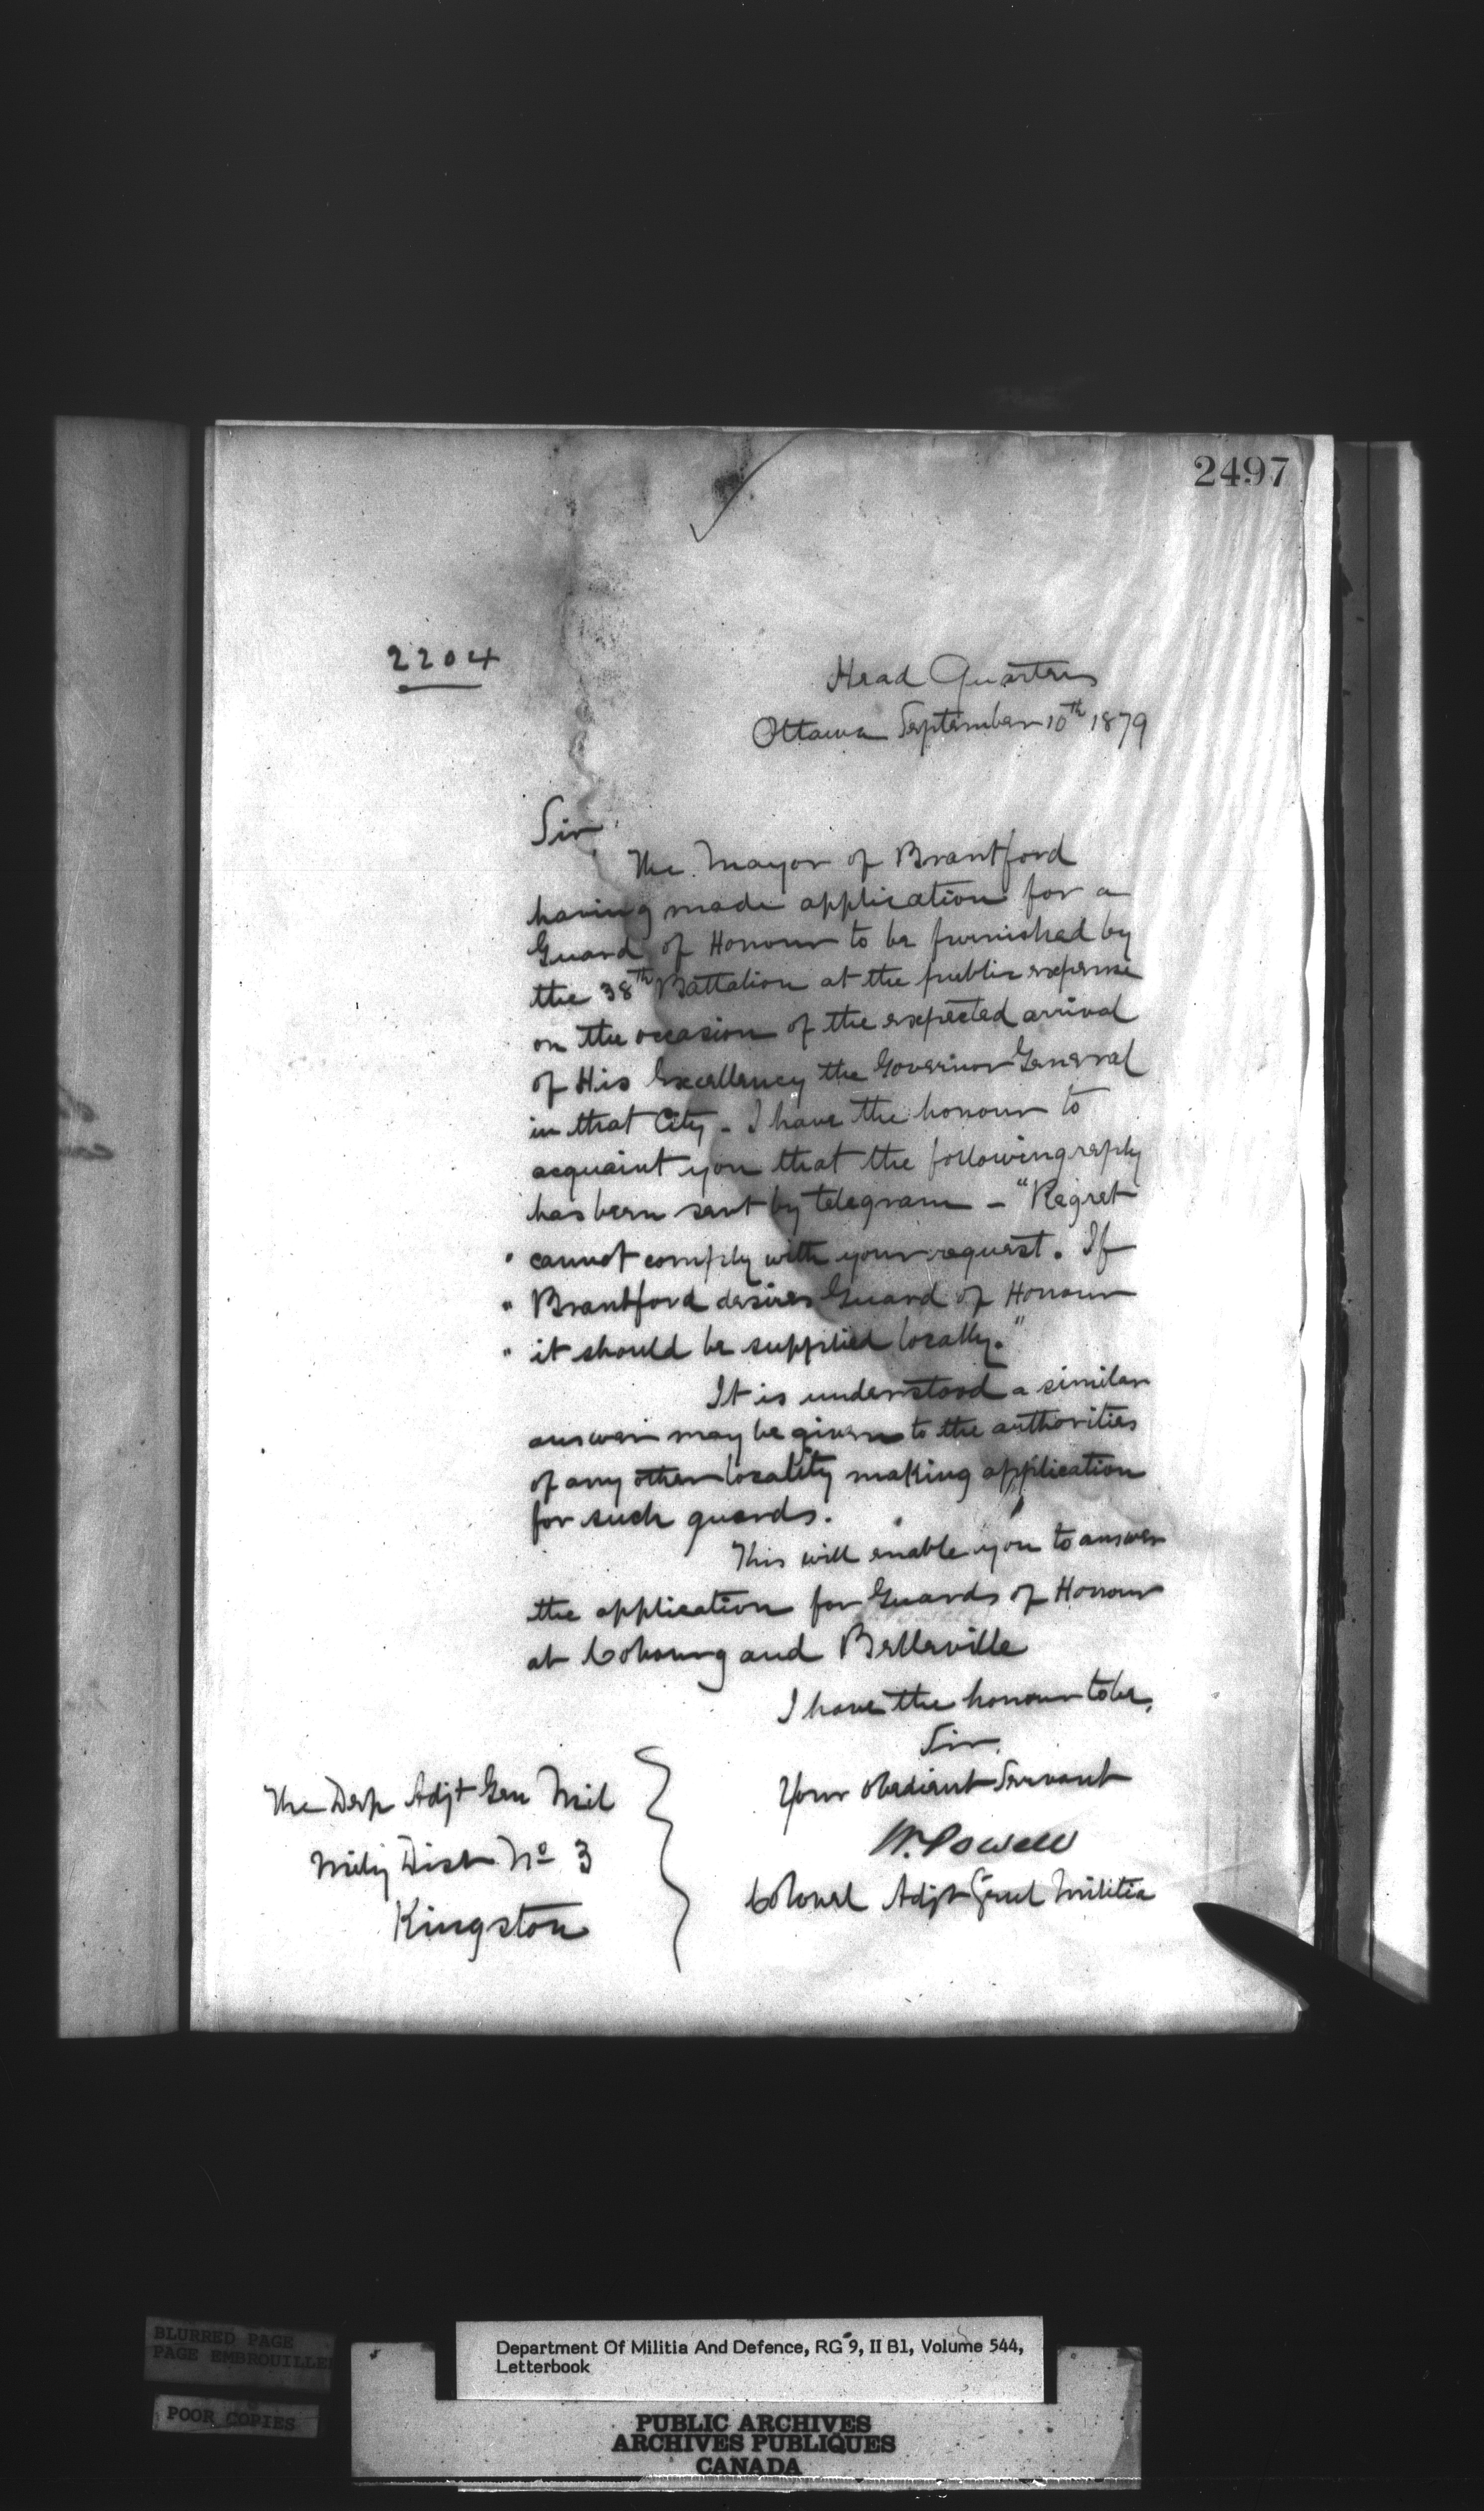 2497
2204
Head Quarters
Ottawa September 10th 1879
Sir,
The Mayor of Brantford
having made application for a
Guard of Honour to be furnished by
the 38th Battalion at the public expense
on the occasion of the expected arrival
of His Excellency the Governor General
in that City - I have the honour to
acquaint you that the following reply
has been sent by telegram - "Regret
" cannot comply with your request. If
" Brantford desires Guard of Honour
" it should be supplied locally."
It is understood a similar
answer may be given to the authorities
of any other locality making application
for such guards.
This will enable you to answer
the application for Guards of Honour
at Cobourg and Belleville
I have the honour to be,
Sir,
Your obedient Servant
W. Powell
Colonel Adjt Genl Militia
The Dep Adjt Gen Mil
Mily Dist No 3
Kingston
BLURRED PAGE
PAGE EMBROUILLEE
POOR COPIES
Department Of Militia And Defence, RG 9, II B1, Volume 544,
Letterbook
PUBLIC ARCHIVES
ARCHIVES PUBLIQUES
CANADA